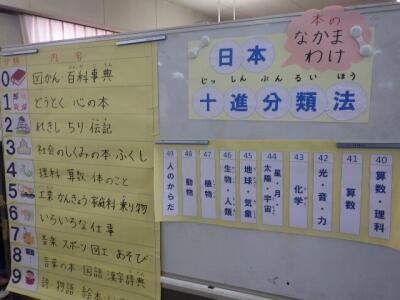 分類 内容
0 図かん 百科事典
1 どうとく 心の本
2 れきし ちり 伝記
3 社会のしくみの本 ふくし
4 理科 算数 体のこと
5 工業 かんきょう 家庭科 乗り物
6 いろいろな仕事
7 音楽 スポーツ 図工 あそび
8 言葉の本 国語 漢字辞典
9 詩 物語 絵本
本の
なかま
わけ
日本
じっ しん ぶん るい ほう
十進分類法
49 人のからだ
48 動物
47 植物
46 生物・人類
45 地球・気象
44 星・月 太陽・宇宙
43 化学
42 光・音・力
41 算数
40 算数・理科